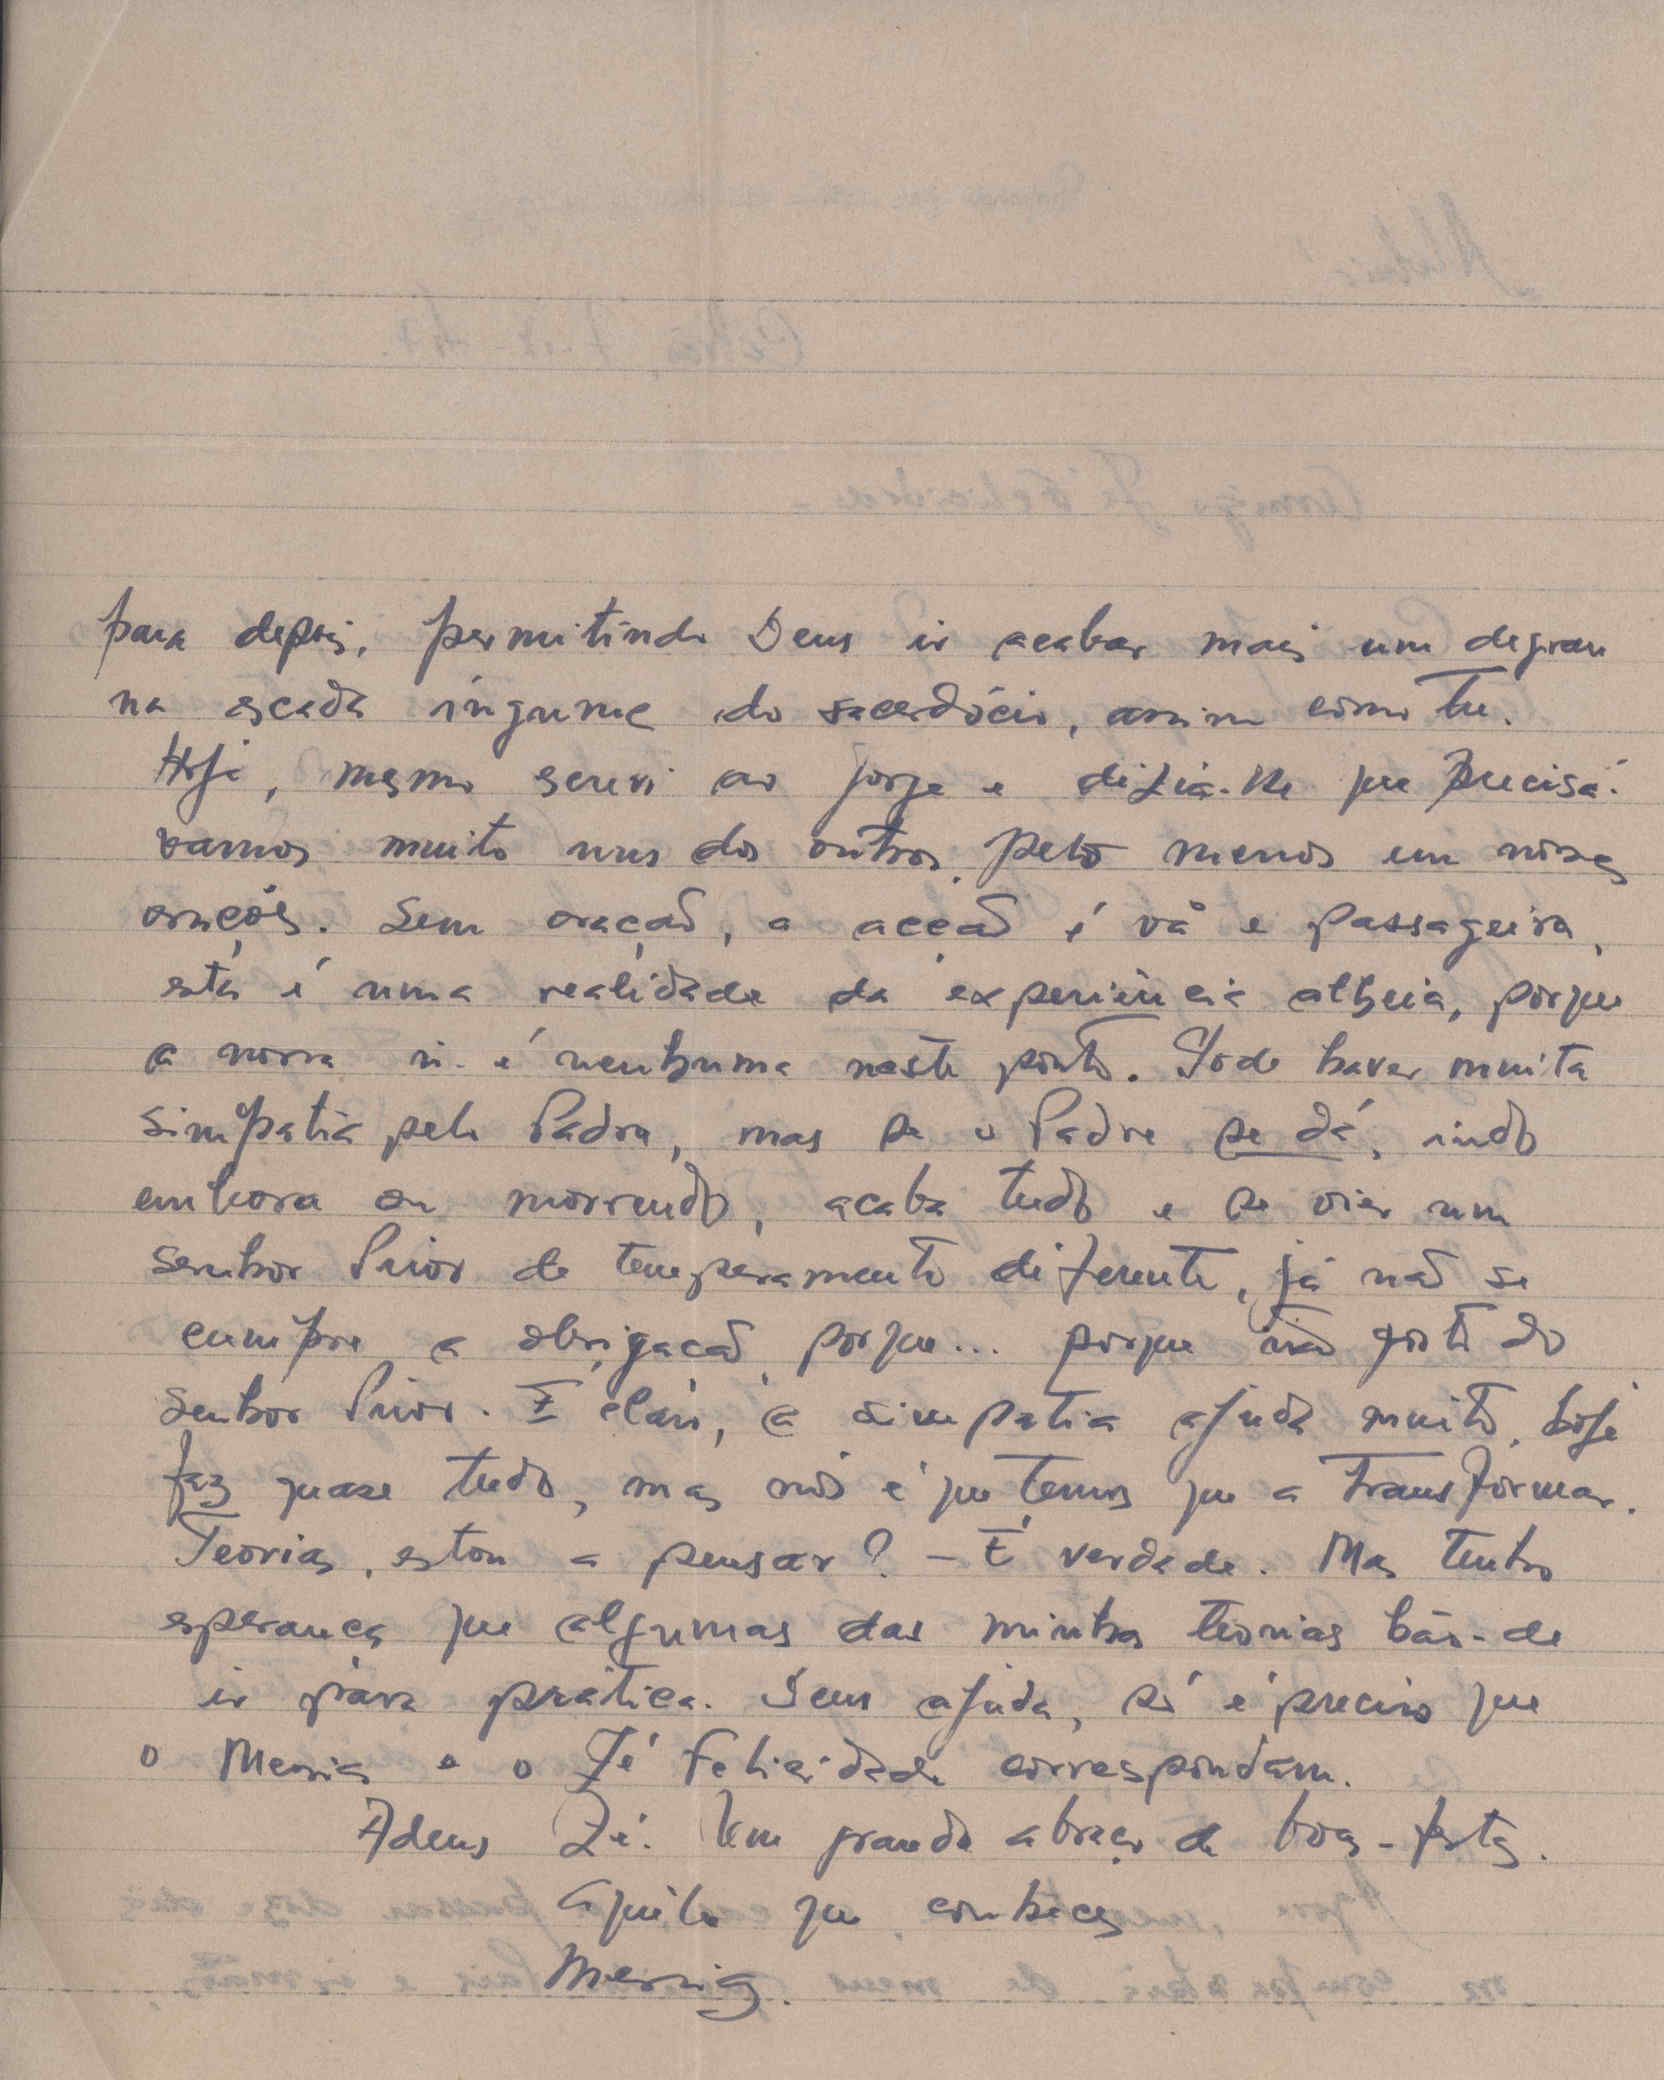 para depois, permitindo Deus ir acabar mais um degrau
na escada íngrume do sacerdócio, assim como tu.
Hoje, mesmo screvi ao Jorge e dizia-lhe que precisá-
vamos muito uns dos outros, pelo menos em nossas
orações. Sem oração, a acção é vã e passageira,
esta é uma realidade da experiência alheia, porque
a nossa n. é nenhuma neste ponto. Pode haver muita
simpatia pelo Padre, mas se o Padre se dá, indo
embora ou morrendo, acaba tudo e se vier um
senhor Prior de temperamento diferente, já não se
cumpre a obrigação, porque... porque não gosto do
senhor Prior. É claro, a simpatia ajuda muito, hoje
faz quase tudo, mas nós é que temos que a transformar.
Teorias, estou a pensar? - É verdade. Mas tenho
esperança que algumas das minhas teorias hão-de
ir para prática. Deus ajuda, só é preciso que
o Messias e o Zé Felicidade correspondam.
Adeus Zé. Um grande abraço de boas-festas.
Aquele que conheces
Messias.